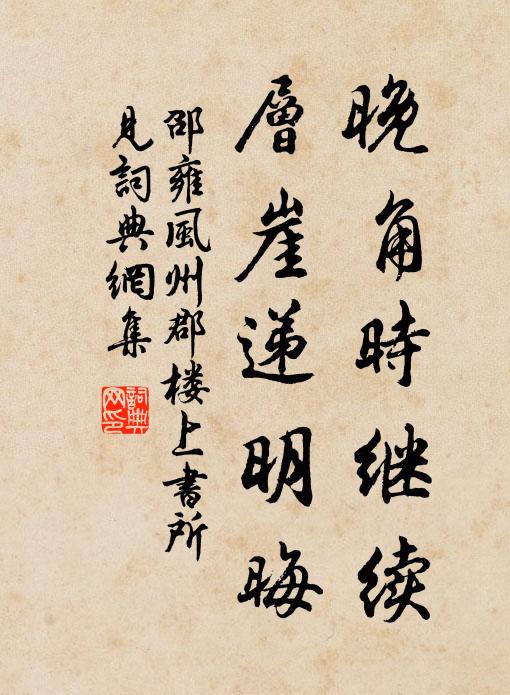 晚角时继续
層崖递明晦
邵雍風州郡楼上書所
見詞典網集
詞典网印